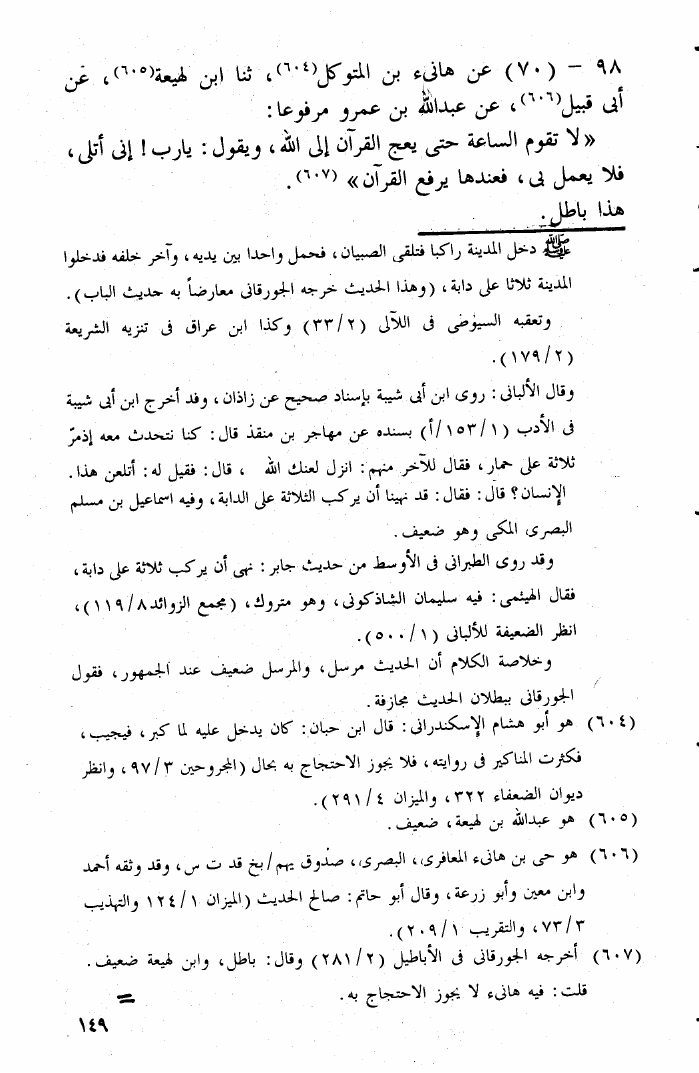 ٩٨ – (٧٠) عن هانىء بن المتوكل(٦٠٤)، ثنا ابن لهيعة(٦٠٥)، عن
أبى قبيل(٦٠٦)، عن عبدالله بن عمرو مرفوعا:
«لا تقوم الساعة حتى يعج القرآن إلى الله، ويقول: يارب! إنى أتلى،
فلا يعمل بى، فعندها يرفع القرآن» (٦٠٧).
هذا باطل.
ﷺ دخل المدينة راكبا فتلقى الصبيان، فحمل واحدا بين يديه، وآخر خلفه فدخلوا
المدينة ثلاثا على دابة، (وهذا الحديث خرجه الجورقانى معارضاً به حديث الباب).
وتعقبه السيوضى فى اللآلى (٣٣/٢) وكذا ابن عراق فى تنزيه الشريعة
(١٧٩/٢).
وقال الألبانى: روى ابن أبى شيبة بإسناد صحيح عن زاذان، وفد أخرج ابن أبى شيبة
فى الأدب (١/١٥٣/أ) بسنده عن مهاجر بن منقذ قال: كنا نتحدث معه إذمرّ
ثلاثة على حمار، فقال للآخر منهم: انزل لعنك الله ، قال: فقيل له: أتلعن هذا.
الإنسان؟ قال: فقال: قد نهينا أن يركب الثلاثة على الدابة، وفيه اسماعيل بن مسلم
البصرى المكى وهو ضعيف.
وقد روى الطبرانى فى الأوسط من حديث جابر: نهى أن يركب ثلاثة على دابة،
فقال الهيثمى: فيه سليمان الشاذكونى، وهو متروك، (مجمع الزوائد١١٩/٨)،
انظر الضعيفة للألبانى (٥٠٠/١).
وخلاصة الكلام أن الحديث مرسل، والمرسل ضعيف عند الجمهور، فقول
الجورقانى ببطلان الحديث مجازفة.
(٦٠٤) هو أبو هشام الإسكندرانى: قال ابن حبان: كان يدخل عليه لما كبر، فيجيب،
فكثرت المناكير فى روايته، فلا يجوز الاحتجاج به بحال (المجروحين ٩٧/٣، وانظر
ديوان الضعفاء ٣٢٢، والميزان ٢٩١/٤).
(٦٠٥) هو عبدالله بن لهيعة، ضعيف.
(٦٠٦) هو حى بن هانىء المعافرى، البصرى، صدوق يهم/بخ قد ت س، وقد وثقه أحمد
وابن معين وأبو زرعة، وقال أبو حاتم: صالح الحديث (الميزان ١٢٤/١ والتهذيب
٧٣/٣، والتقريب ٢٠٩/١).
(٦٠٧) أخرجه الجورقانى فى الأباطيل (٢٨١/٢) وقال: باطل، وابن لهيعة ضعيف.
قلت: فيه هانىء لا يجوز الاحتجاج به.
=
١٤٩